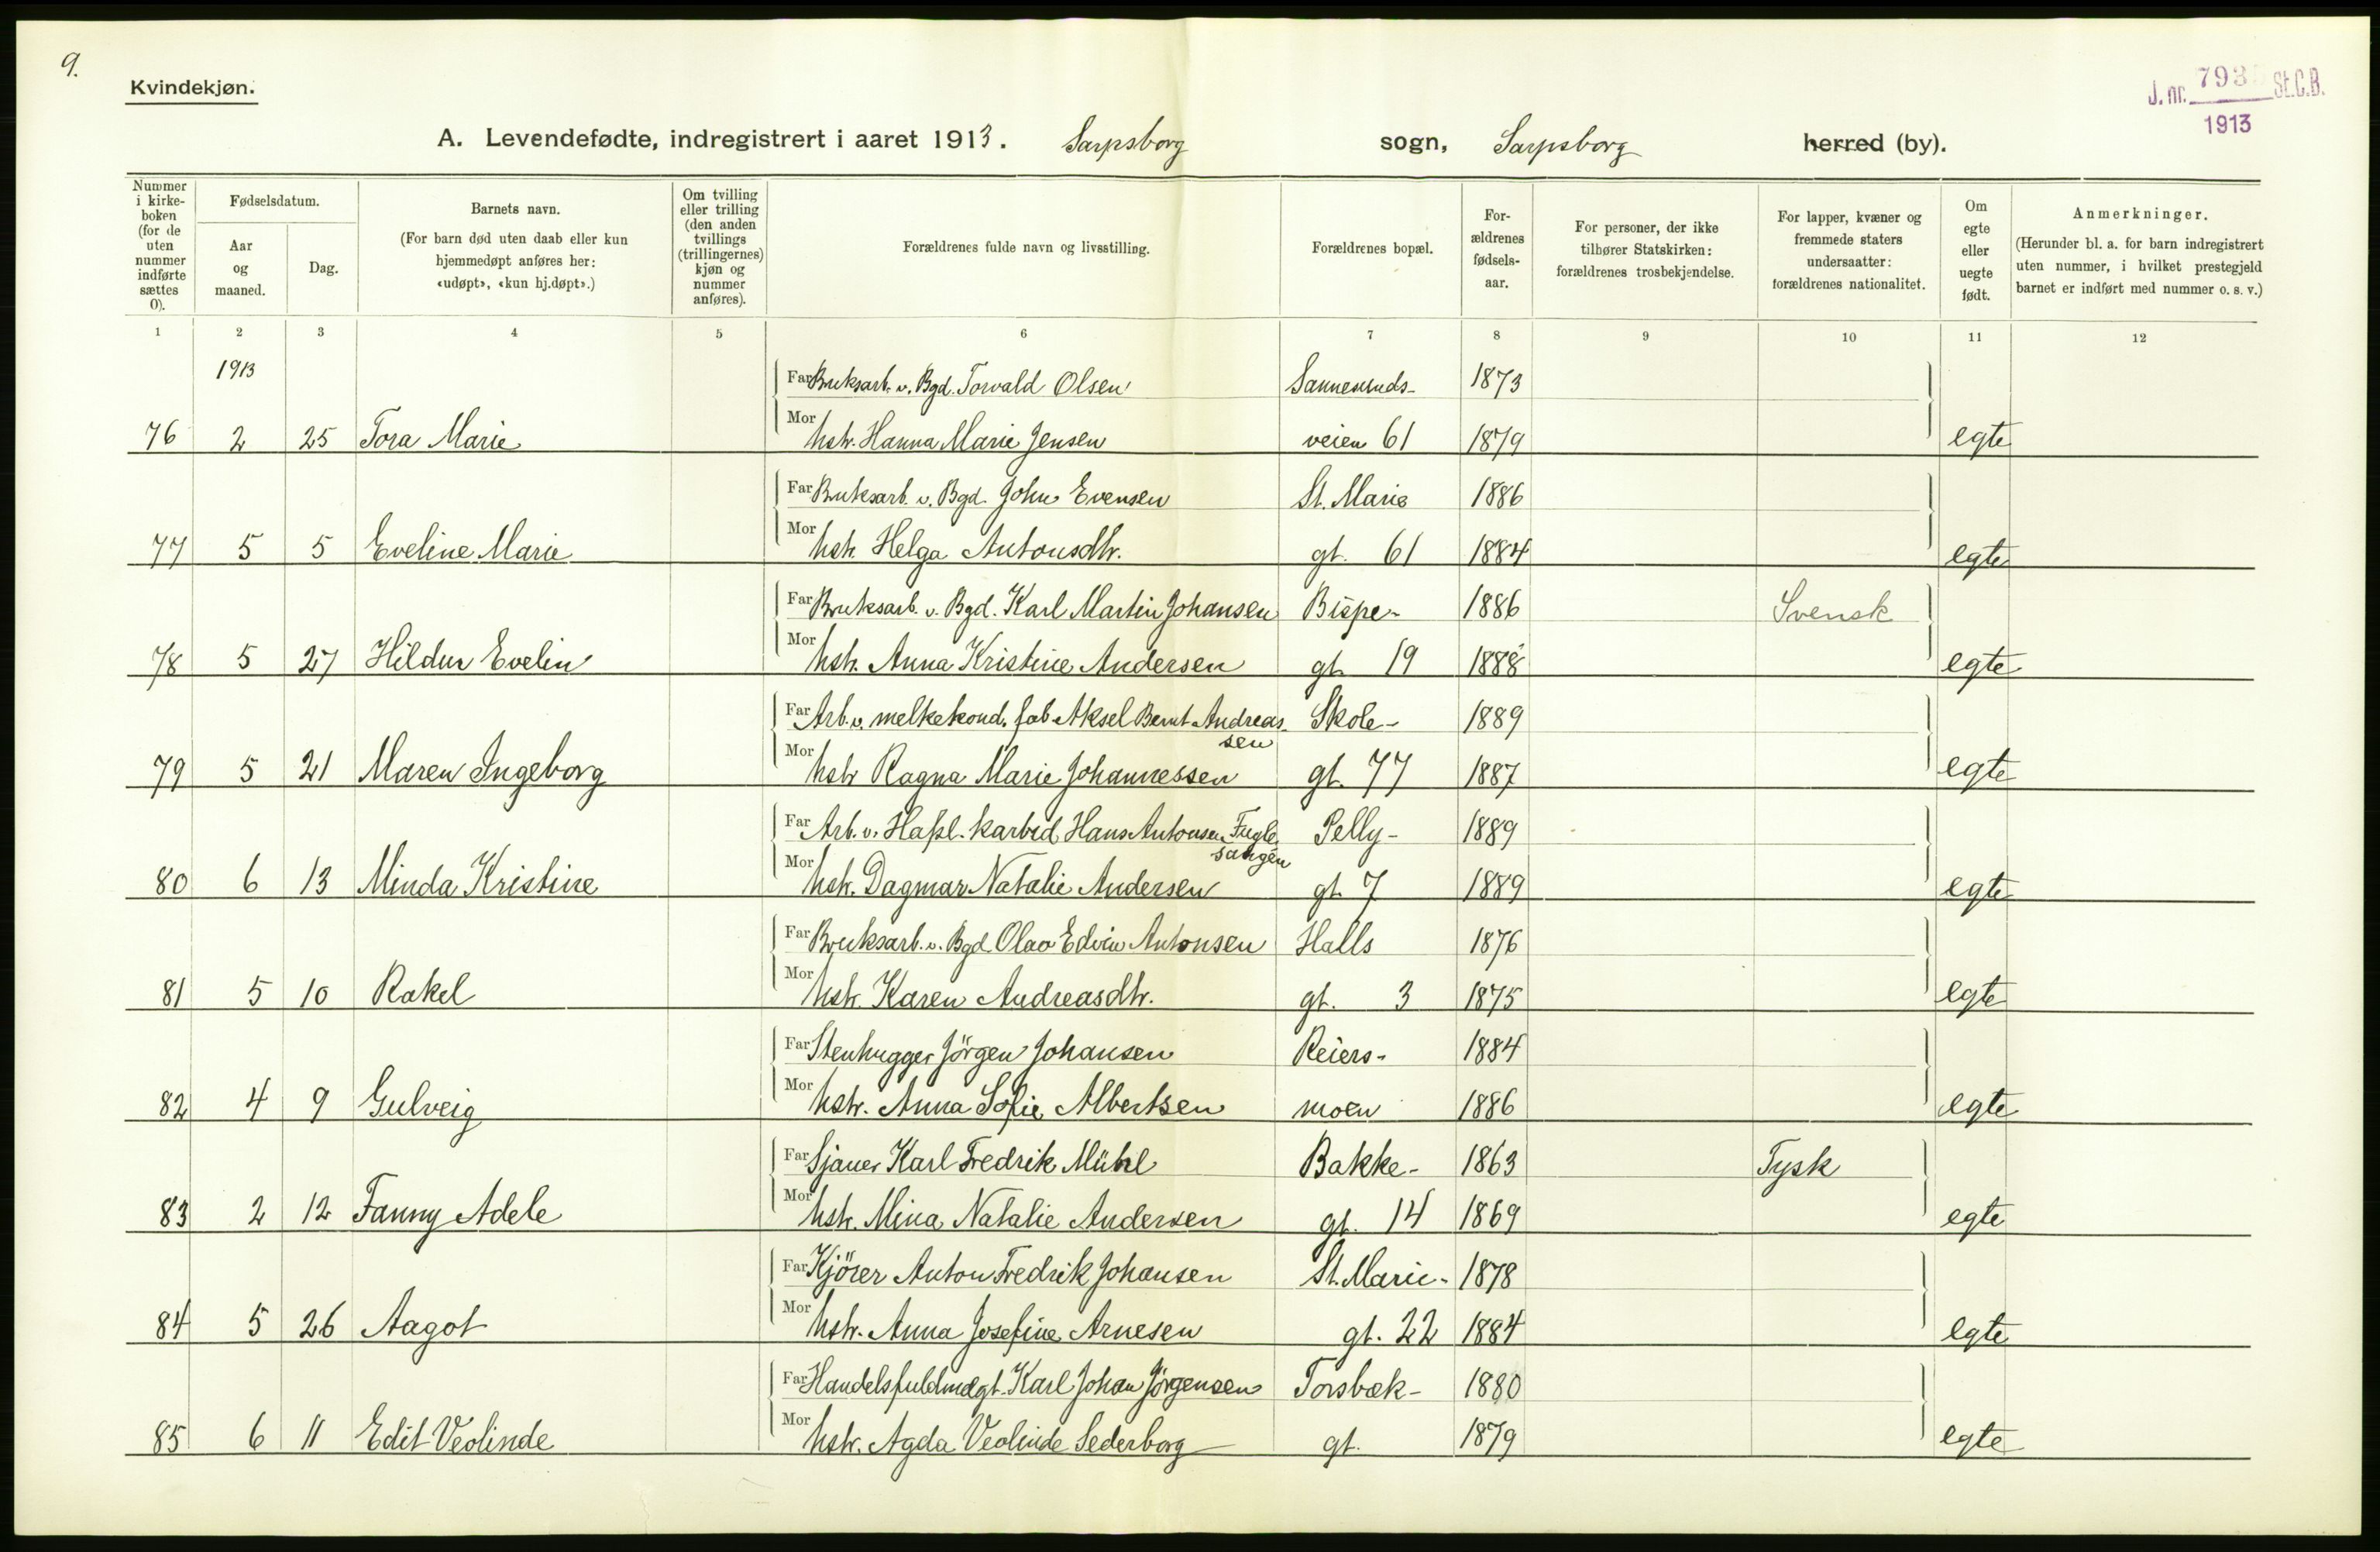 9.
Kvindekjøn.
J. nr. 793 St.C.B.
1913
A. Levendefødte, indregistrert i aaret 1913. Sarpsborg sogn, Sarpsborg herred (by).
Nummer i kirke-boken (for de uten nummer indførte sættes 0).
Fødselsdatum.
Aar og maaned.
Dag.
Barnets navn.
(For barn død uten daab eller kun hjemmedøpt anføres her: «udøpt», «kun hj.døpt».)
Om tvilling eller trilling (den anden tvillings (trillingernes) kjøn og nummer anføres).
Forældrenes fulde navn og livsstilling.
Forældrenes bopæl.
For-ældrenes fødsels-aar.
For personer, der ikke tilhører Statskirken: forældrenes trosbekjendelse.
For lapper, kvæner og fremmede staters undersaatter: forældrenes nationalitet.
Om egte eller uegte født.
Anmerkninger.
(Herunder bl. a. for barn indregistrert uten nummer, i hvilket prestegjeld barnet er indført med nummer o. s. v.)
1 2 3 4 5 6 7 8 9 10 11 12
1913
Far Bruksarb. v. Bgd. Torvald Olsen Sannesunds- 1873
76 2 25 Tora Marie Mor hstr. Hanna Marie Jensen veien 61 1879 egte
Far Bruksarb. v. Bgd. John Evensen St. Marie 1886
77 5 5 Eveline Marie Mor hstr. Helga Antonsdtr. gt. 61 1884 egte
Far Bruksarb. v. Bgd. Karl Martin Johansen Bispe- 1886 Svensk
78 5 27 Hildur Evelin Mor hstr. Anna Kristine Andersen gt. 19 1888 egte
Far Arb. v. melkekond. fab Aksel Bernt Andreas- Skole- 1889
sen
79 5 21 Maren Ingeborg Mor hstr Ragna Marie Johannessen gt. 77 1887 egte
Far Arb. v. Hafsl. karbid Hans Antonsen Fugle Pelly- 1889
sangen
80 6 13 Minda Kristine Mor hstr. Dagmar Natalie Andersen gt. 7 1889 egte
Far Bruksarb. v. Bgd. Olav Edvin Antonsen Halls 1876
81 5 10 Rakel Mor hstr. Karen Andreasdtr. gt. 3 1875 egte
Far Stenhugger Jörgen Johansen Reiers- 1884
82 4 9 Gulveig Mor hstr. Anna Sofie Albertsen moen 1886 egte
Far Sjauer Karl Fredrik Mühl Bakke- 1863 Tysk
83 2 12 Fanny Adele Mor hstr. Mina Natalie Andersen gt. 14 1869 egte
Far Kjörer Anton Fredrik Johansen St. Marie- 1878
84 5 26 Aagot Mor hstr. Anna Josefine Arnesen gt. 22 1884 egte
Far Handelsfuldmægt. Karl Johan Jörgensen Torsbæk- 1880
85 6 11 Edit Veolinde Mor hstr. Agda Veolinde Sederborg gt. 1879 egte